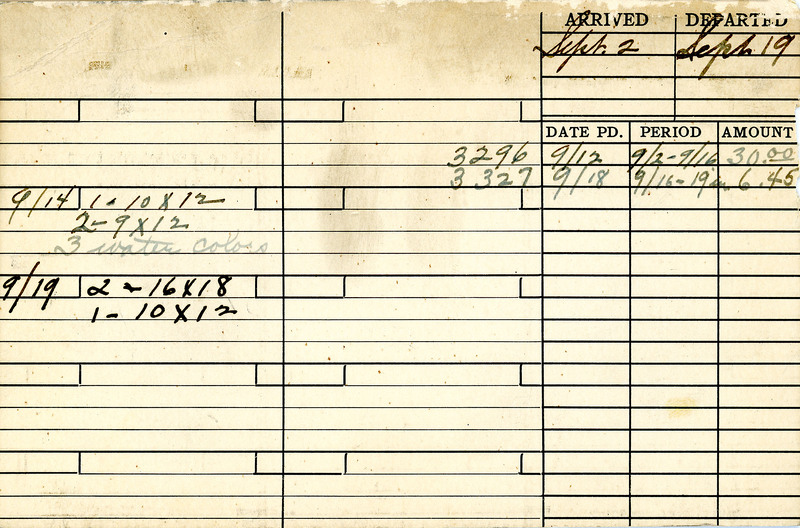 ARRIVED DEPARTED
Sept. 2 Sept. 19
DATE PD. PERIOD AMOUNT
3296 9/12 9/2-9/16 30.00
3327 9/18 9/16-19 6.45
9/14 1- 10 X 12
2- 9 X 12
3 water colors
9/19 2 - 16 X 18
1- 10 X 12